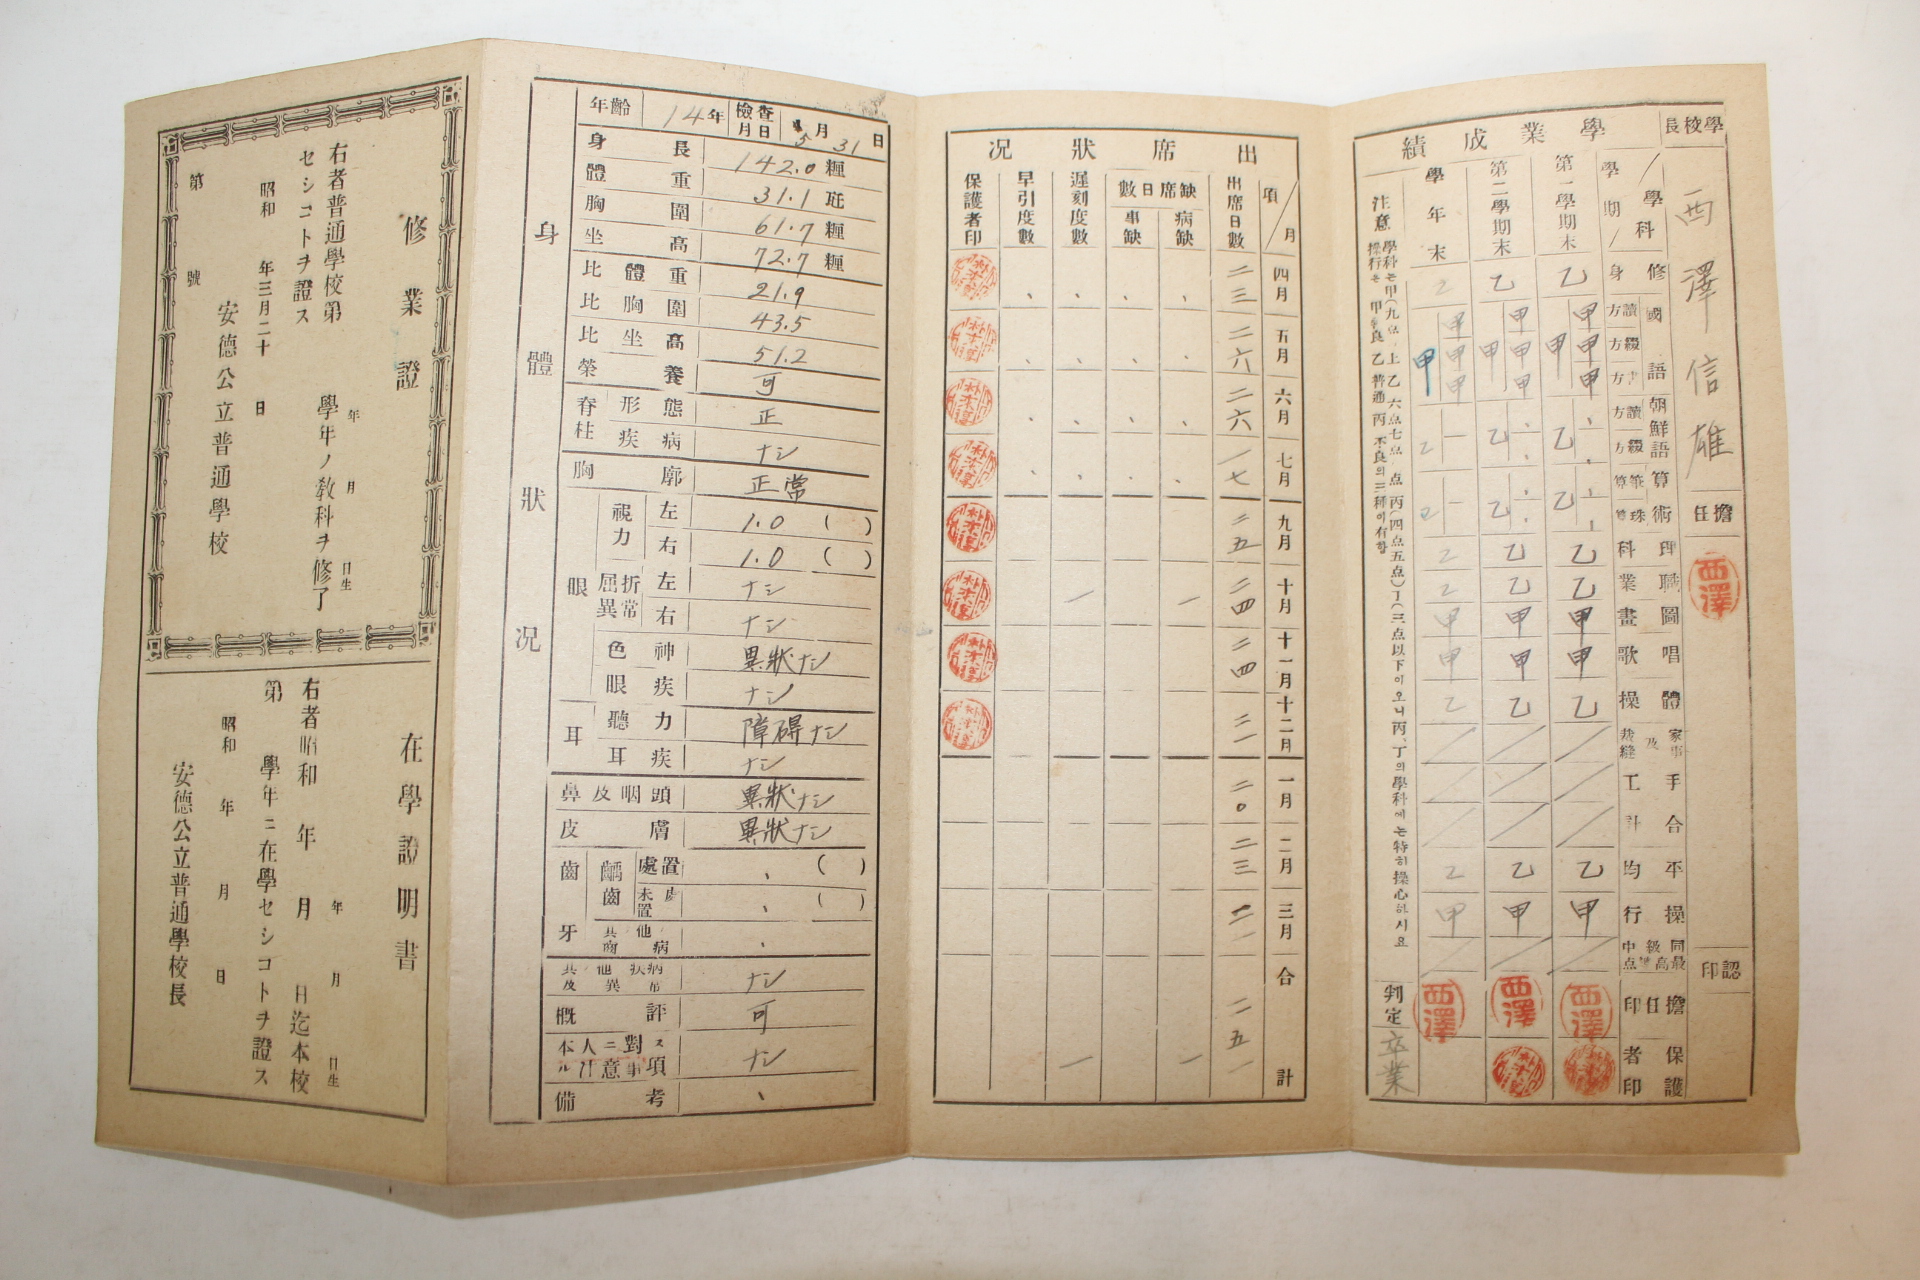 學校長
西澤信雄
擔任
西澤
認印
學業成績
學期／學科
第一學期末
第二學期末
學年末
修身 乙 乙 乙
國語
讀方 甲 甲 甲
綴方 甲 甲 甲
書方 甲 甲 甲
甲 甲 甲
朝鮮語
讀方
綴方
乙 乙 乙
算術
筆算
珠算
乙 乙 乙
理科 乙 乙 乙
職業 乙 乙 乙
圖畫 甲 甲 甲
唱歌 甲 甲 甲
體操 乙 乙 乙
家事及裁縫
手工
合計
平均 乙 乙 乙
操行 甲 甲 甲
同級中最高點
擔任印 西澤 西澤 西澤
保護者印
判定 卒業
注意
學科는甲(九点、上 乙 六点七点、点 丙(四点五点)丁(三点以下이오니丙、丁의學科에는特히操心하시요
操行은 甲 良 乙 普通 丙 不良의三種이有함
出席狀況
項／月
出席日數
缺席日數
病缺
事缺
遲刻度數
早引度數
保護者印
四月 二三
五月 二六
六月 二六
七月 一七
九月 二五
十月 二四 一 一
十一月 二四
十二月 二二
一月 二〇
二月 二三
三月 二一
合計 二五一 一 一
身體狀況
年齡 14年 檢查月日 5月31日
身長 142.0 糎
體重 31.1 瓩
胸圍 61.7 糎
坐高 72.7 糎
比體重 21.9
比胸圍 43.5
比坐高 51.2
榮養 可
脊柱
形態 正
疾病 ナシ
胸廓 正常
眼
視力
左 1.0 ( )
右 1.0 ( )
屈折異常
左 ナシ
右 ナシ
色神 異狀ナシ
眼疾 ナシ
耳
聽力 障碍ナシ
耳疾 ナシ
鼻及咽頭 異狀ナシ
皮膚 異狀ナシ
齒牙
齲齒
處置 、 ( )
未處置 、 ( )
其他ノ齒病 、
其ノ他疾病及異常 ナシ
概評 可
本人ニ對スル注意事項 ナシ
備考 、
修業證
年 月 日生
右者普通學校第 學年ノ敎科ヲ修了
セシコトヲ證ス
昭和 年三月二十 日
安德公立普通學校
第 號
在學證明書
年 月 日生
右者昭和 年 月 日迄本校
第 學年ニ在學セシコトヲ證ス
昭和 年 月 日
安德公立普通學校長